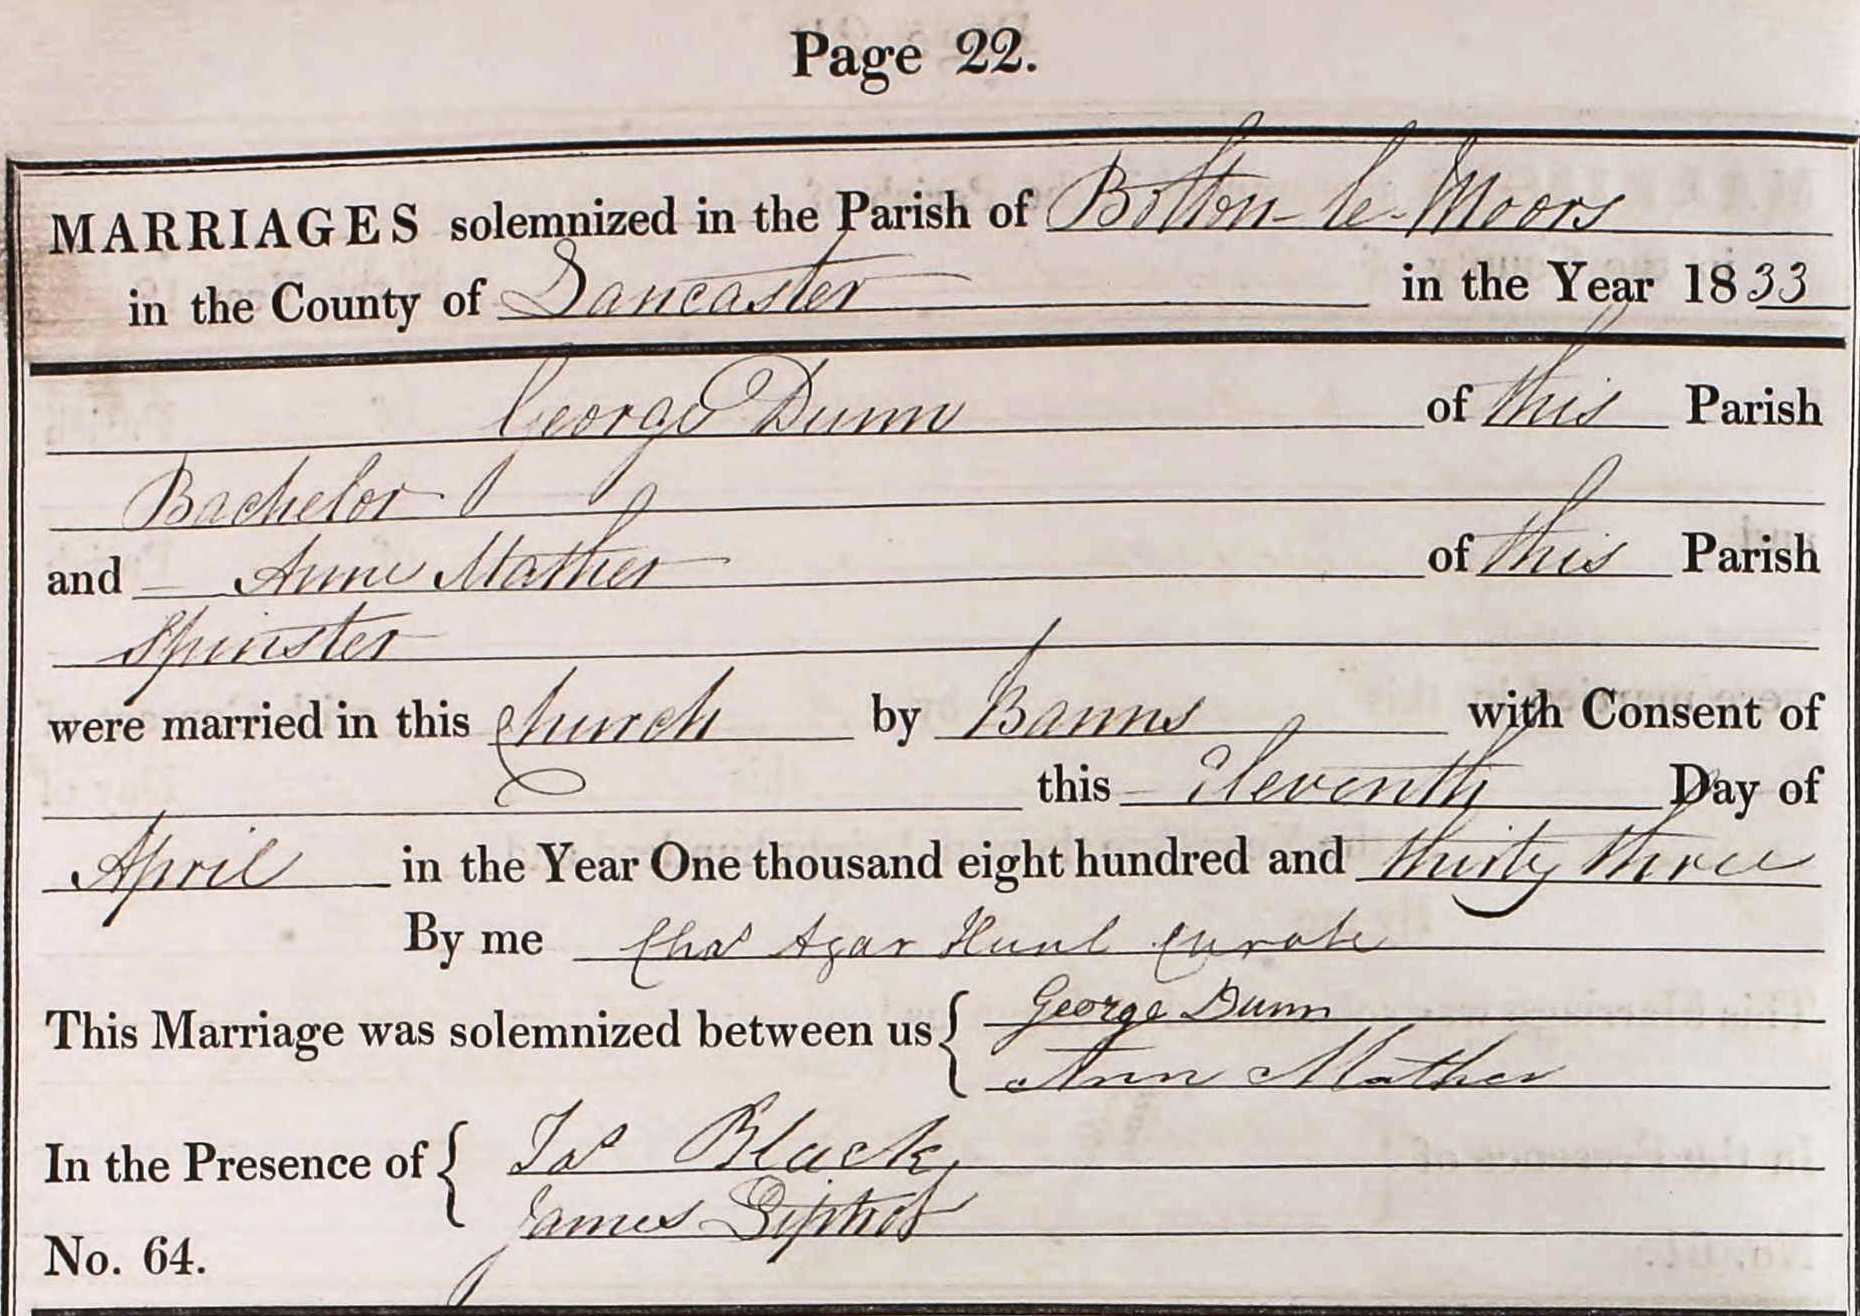 Page 22.
MARRIAGES solemnized in the Parish of Bolton-le-Moors
in the County of Lancaster in the Year 1833
George Dunn of this Parish
Bachelor
and Anne Mather of this Parish
Spinster
were married in this Church by Banns with Consent of
this Eleventh Day of
April in the Year One thousand eight hundred and thirty three
By me Chas Agar Hunt Curate
This Marriage was solemnized between us { George Dunn
Ann Mather
In the Presence of { Jas Black
James
No. 64.